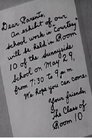 Dear Parents,
An exhibit of our
school work in Courtesy
will be held in Room
10 of the Sunnyside
School on May 29,
from 7:30 to 9 p.m.
We hope you can come
Your friends
The Class of
Room 10